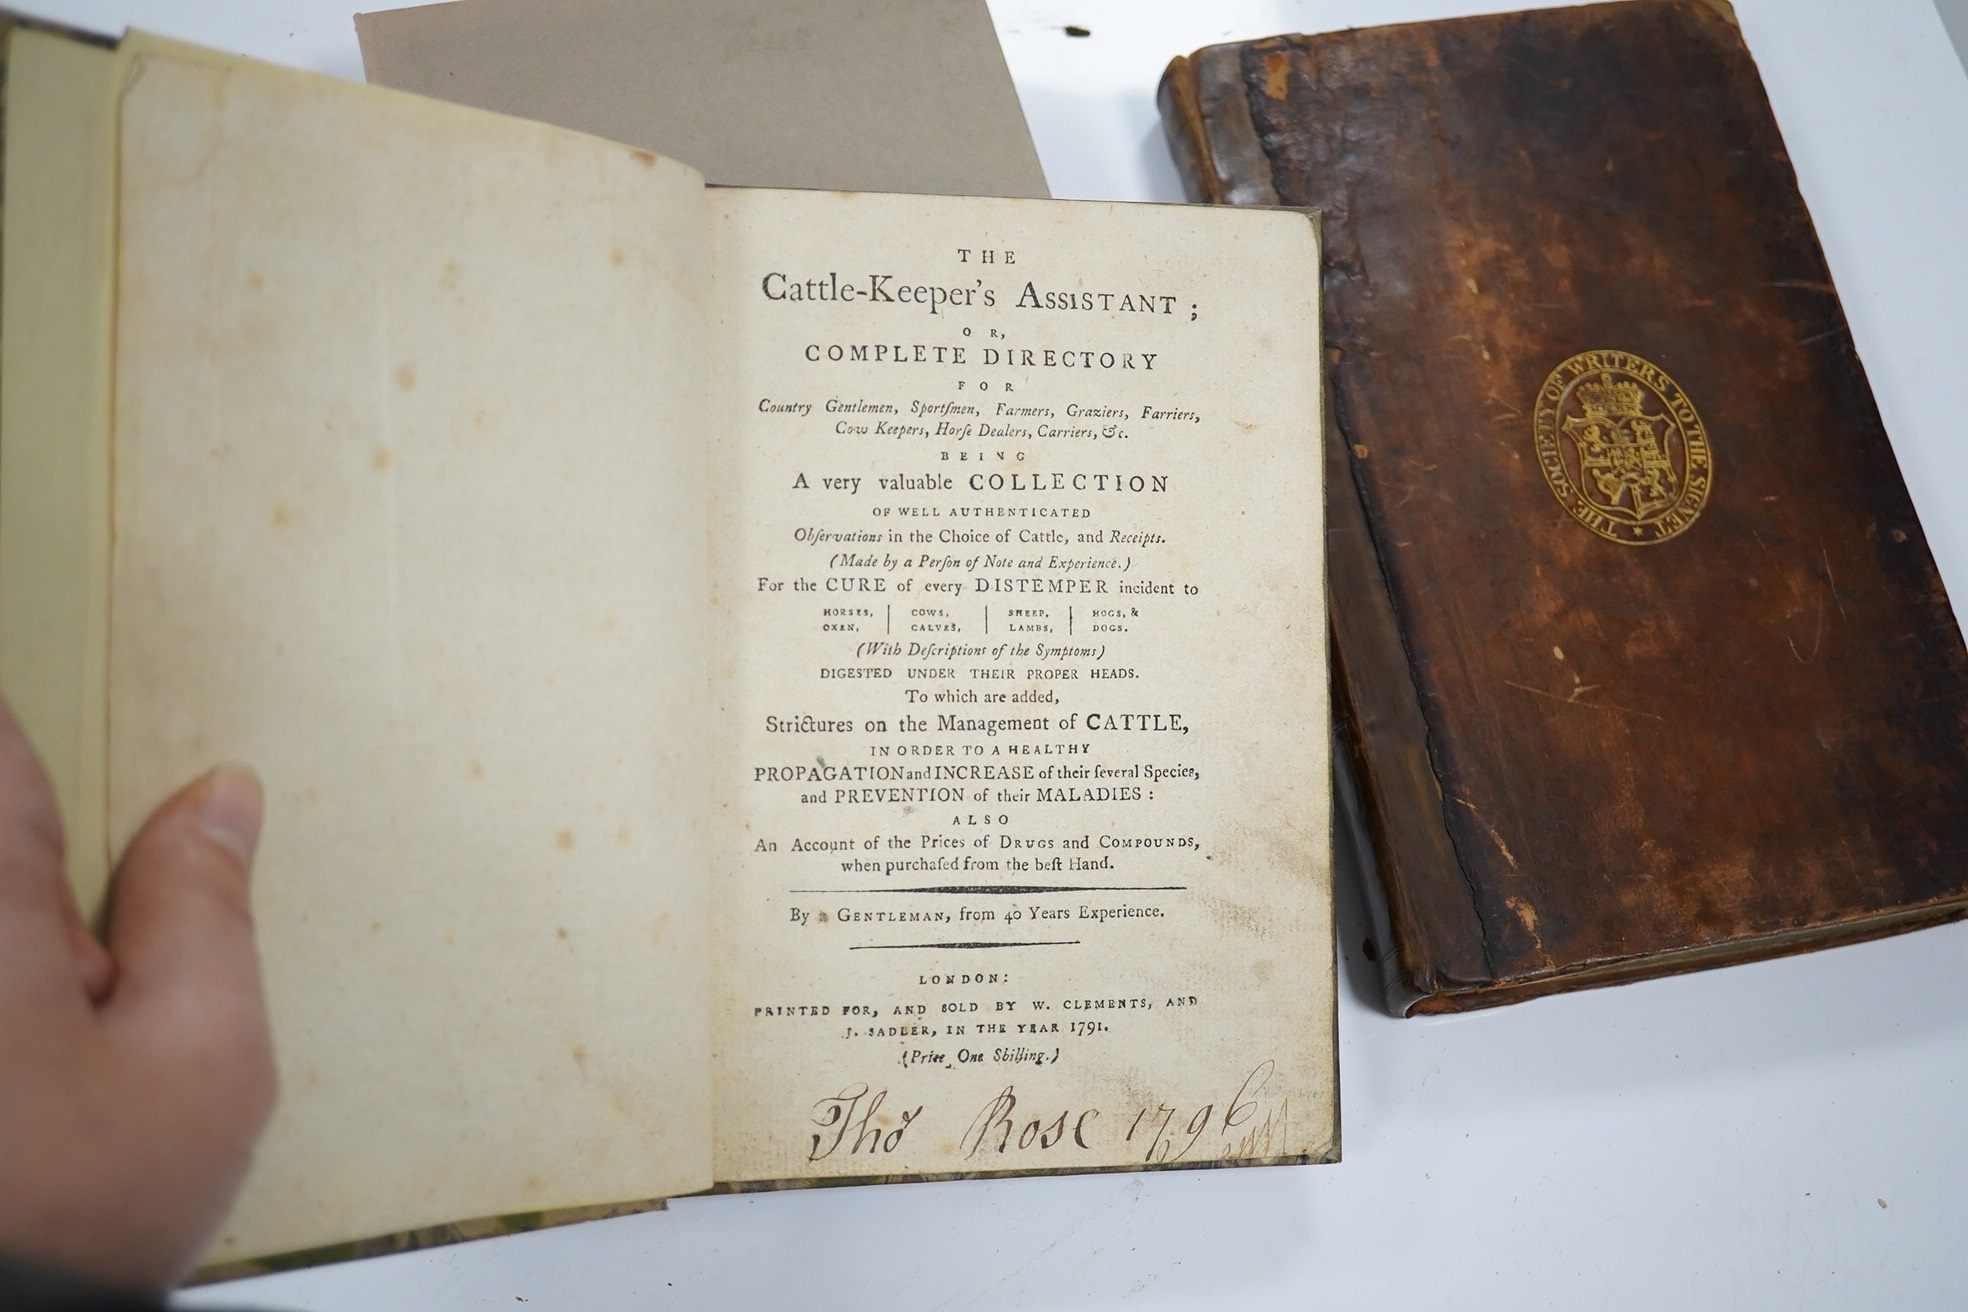 THE
Cattle-Keeper's ASSISTANT;
OR,
COMPLETE DIRECTORY
FOR
Country Gentlemen, Sportſmen, Farmers, Graziers, Farriers,
Cow Keepers, Horſe Dealers, Carriers, &c.
BEING
A very valuable COLLECTION
OF WELL AUTHENTICATED
Obſervations in the Choice of Cattle, and Receipts.
(Made by a Perſon of Note and Experience.)
For the CURE of every DISTEMPER incident to
HORSES, | COWS, | SHEEP, | HOGS, &
OXEN, | CALVES, | LAMBS, | DOGS.
(With Deſcriptions of the Symptoms)
DIGESTED UNDER THEIR PROPER HEADS.
To which are added,
Strictures on the Management of CATTLE,
IN ORDER TO A HEALTHY
PROPAGATION and INCREASE of their ſeveral Species,
and PREVENTION of their MALADIES:
ALSO
An Account of the Prices of DRUGS and COMPOUNDS,
when purchaſed from the beſt Hand.
By a GENTLEMAN, from 40 Years Experience.
LONDON:
PRINTED FOR, AND SOLD BY W. CLEMENTS, AND
J. SADLER, IN THE YEAR 1791.
(Price One Shilling.)
Thos Rose 1796
THE SOCIETY OF WRITERS TO THE SIGNET *